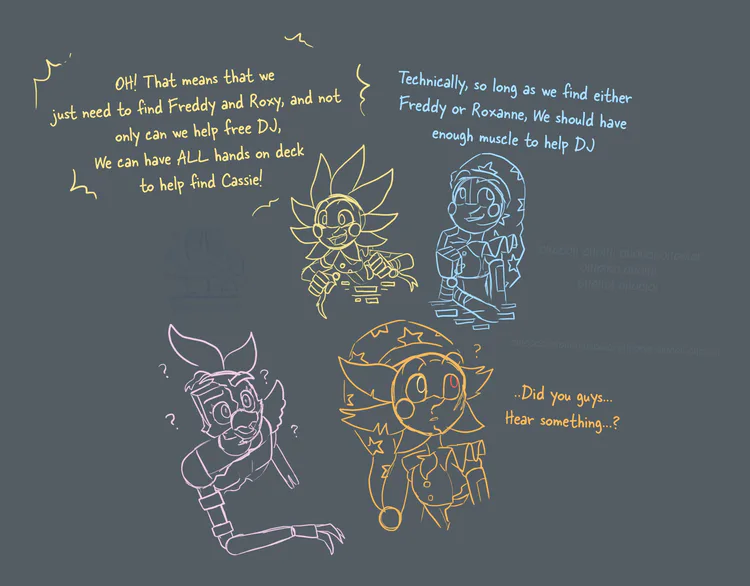 OH! That means that we
just need to find Freddy and Roxy, and not
only can we help free DJ,
We can have ALL hands on deck
to help find Cassie!
Technically, so long as we find either
Freddy or Roxanne, We should have
enough muscle to help DJ
?
?
?
?
?
..Did you guys...
Hear something...?